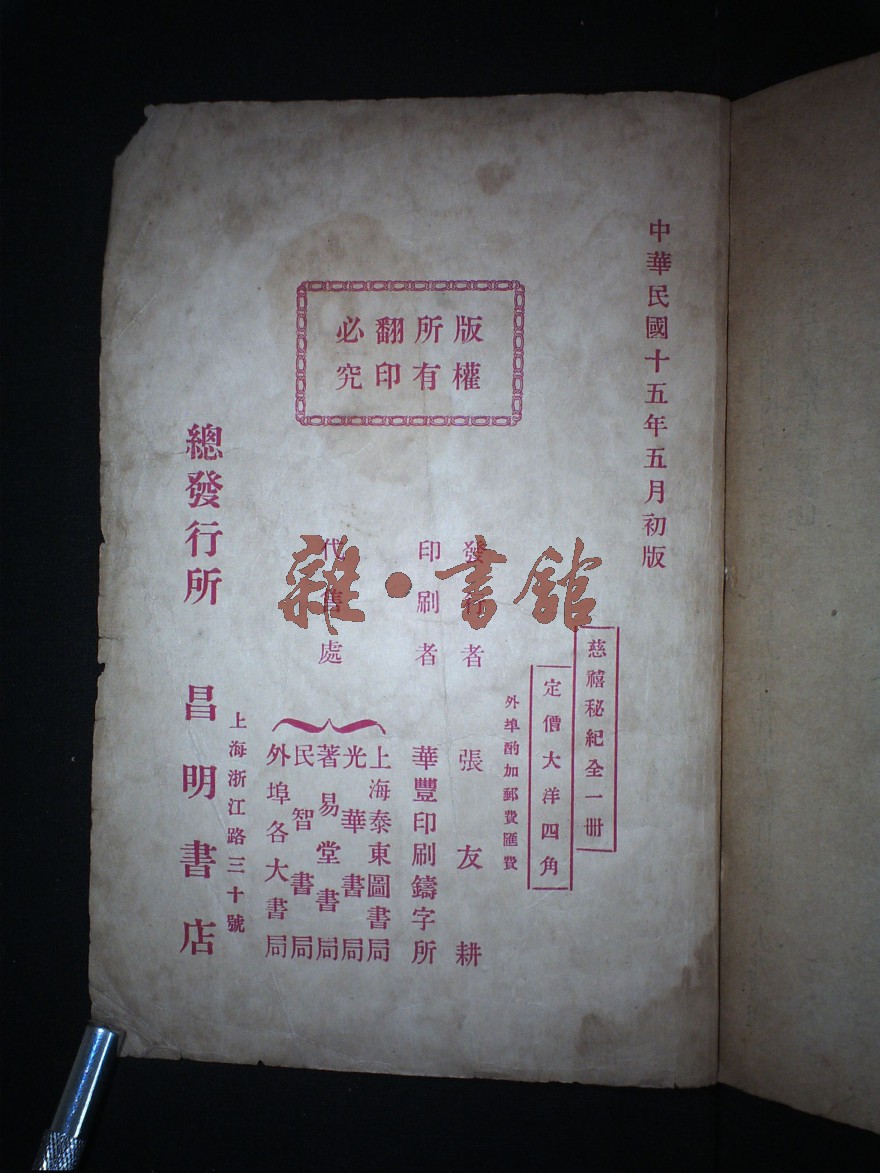 中華民國十五年五月初版
慈禧秘紀全一冊
定價大洋四角
外埠酌加郵費匯費
版權
所有
翻印
必究
發行者 張友耕
印刷者 華豐印刷鑄字所
代售處
上海泰東圖書局
光華書局
著易堂書局
民智書局
外埠各大書局
上海浙江路三十號
總發行所 昌明書店
雜·書館